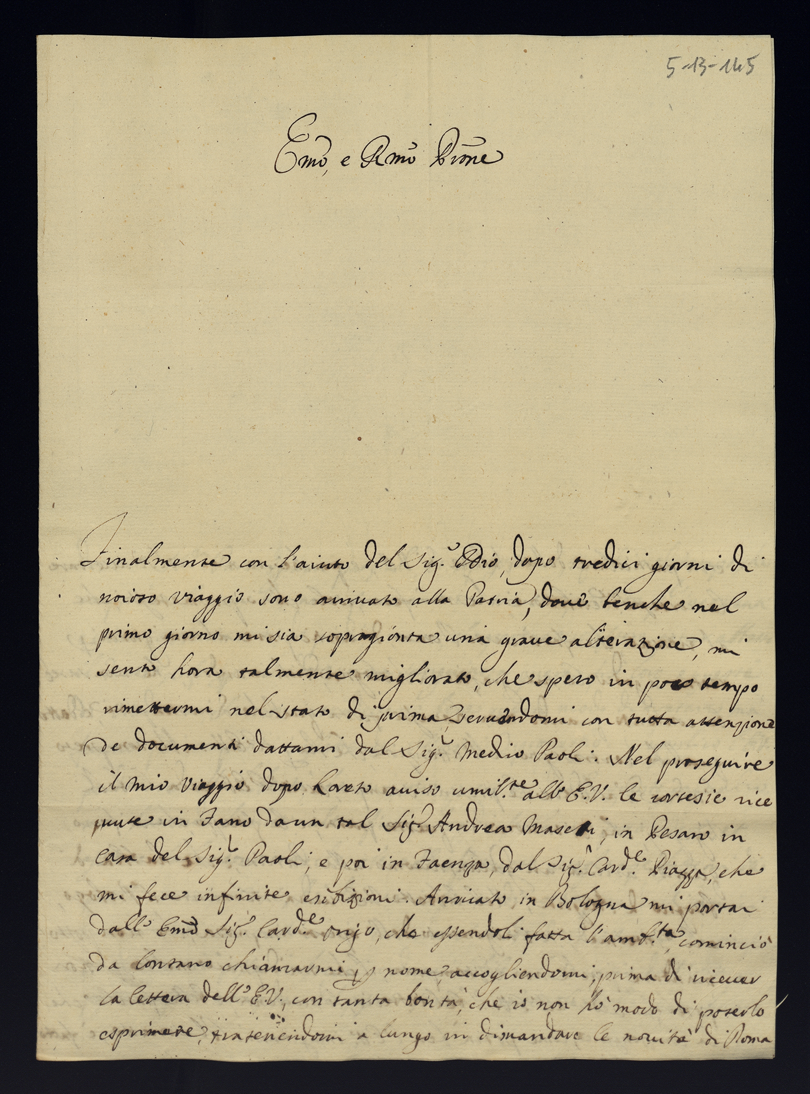 5-13-145
Emo, e Rmo Prone
Finalmente con l'aiuto del Sig.r Iddio, dopo tredici giorni di
noioso viaggio sono arrivato alla Patria, dove benche nel
primo giorno mi sia sopragionta una grave alterazione, mi
sento hora talmente migliorato, che spero in poco tempo
rimettermi nel stato di prima, servendomi con tutta attenzione
de documenti dattami dal Sig.r Medico Paoli. Nel proseguire
il mio viaggio dopo Loreto aviso umil.te all'E.V. le cortesie rice
vute in Fano da un tal Sig.r Andrea in Pesaro in
casa del Sig.r Paoli, e poi in Faenza, dal Sig.r Card.e Piazza, che
mi fece infinite esibizioni. Arrivato in Bologna mi portai
dall'Emo Sig.r Card.e Origo, che essendoli fatta l'amb.ta cominciò
da lontano chiamarmi p nome, accogliendomi, prima di ricever
la lettera dell'E.V., con tanta bontà, che io non hò modo di poterlo
esprimere, trattenendomi a lungo in dimandare le novità di Roma